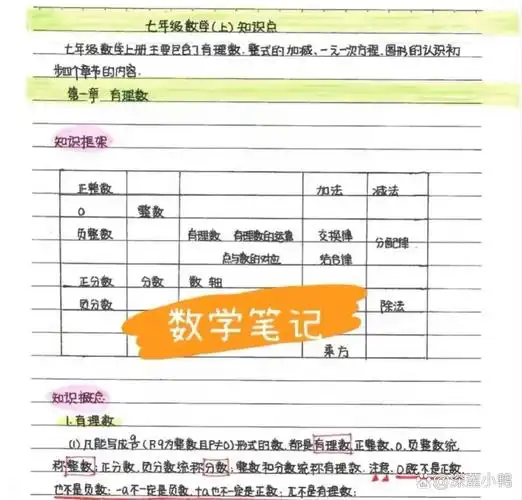 七年级数学(上)知识点
七年级数学上册主要包含了有理数、整式的加减、一元一次方程、图形的认识初
步四个章节的内容.
第一章 有理数
知识框架
正整数 加法 减法
0 整数
负整数 有理数 有理数的运算 交换律 分配律
点与数的对应 结合律
正分数 分数 数轴
负分数 除法
数学笔记
乘方
知识概念
1.有理数
(1)凡能写成 q (P,q为整数且P≠0)形式的数,都是有理数.正整数、0、负整数统
称整数;正分数、负分数统称分数;整数和分数统称有理数.注意:0既不是正数,
也不是负数;-a不一定是负数,+a也不一定是正数;π不是有理数;